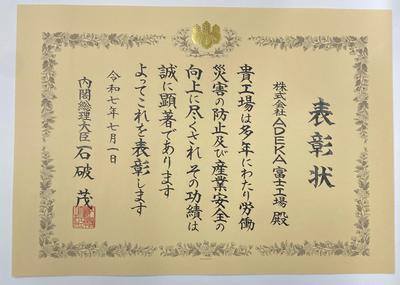 表彰状
株式会社ADEKA富士工場 殿
貴工場は多年にわたり労働
災害の防止及び産業安全の
向上に尽くされ その功績は
誠に顕著であります
よってこれを表彰します
令和七年七月一日
内閣総理大臣 石破 茂